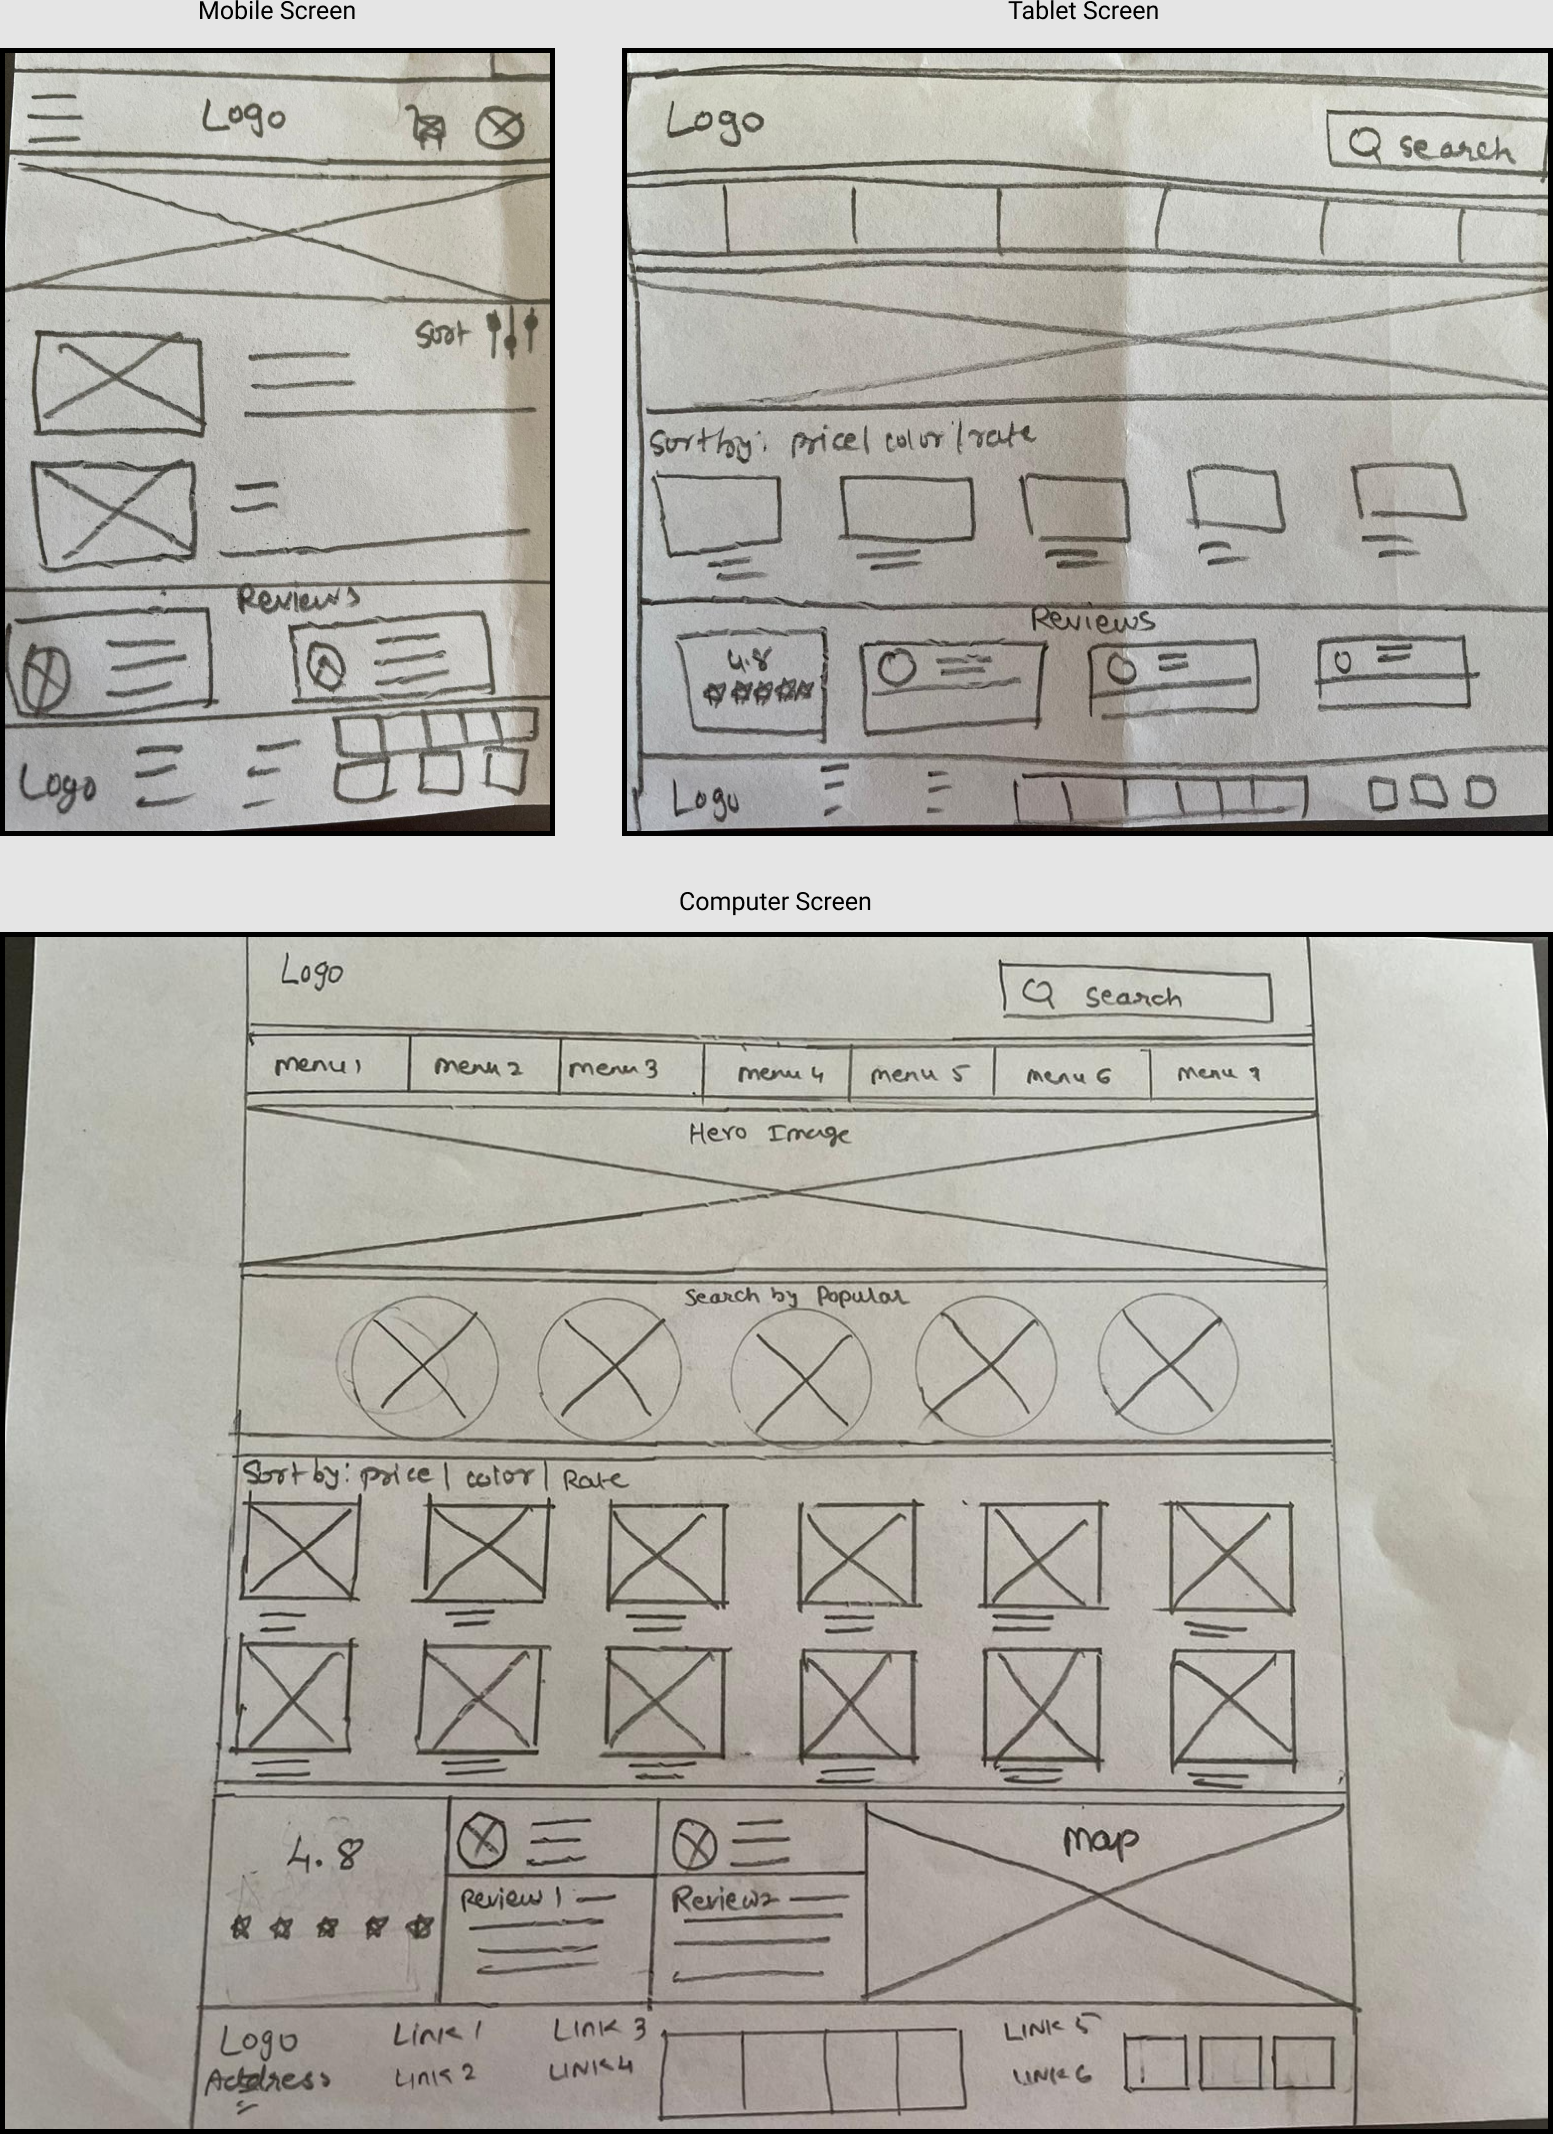 Mobile Screen
Logo
Sort
Reviews
Logo
Tablet Screen
Logo
search
Sort by: price/ color/rate
Reviews
4.8
Logo
Computer Screen
Logo
search
menu 1 menu 2 menu 3 menu 4 menu 5 menu 6 menu 7
Hero Image
Search by Popular
Sort by: price/ color/ Rate
4.8
Map
Review 1
Review 2
Logo Link 1 Link 3 LINK 5
Address Link 2 LINK 4 LINK 6